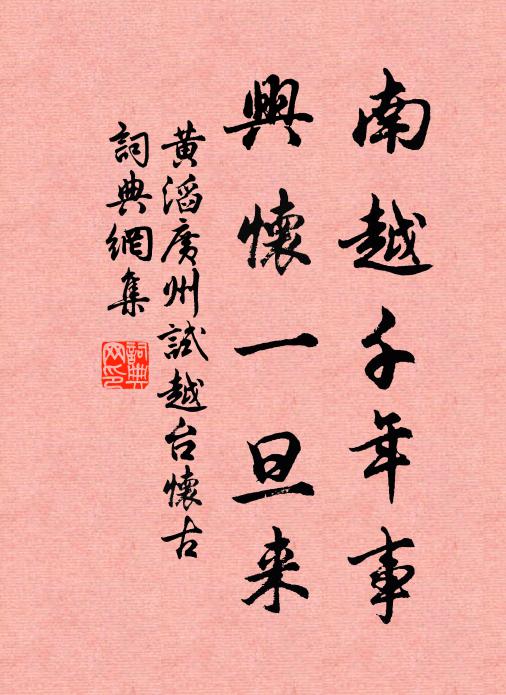 南越千年事
興懷一旦来
黄滔廣州試越台懷古
詞典網集
詞典
网印